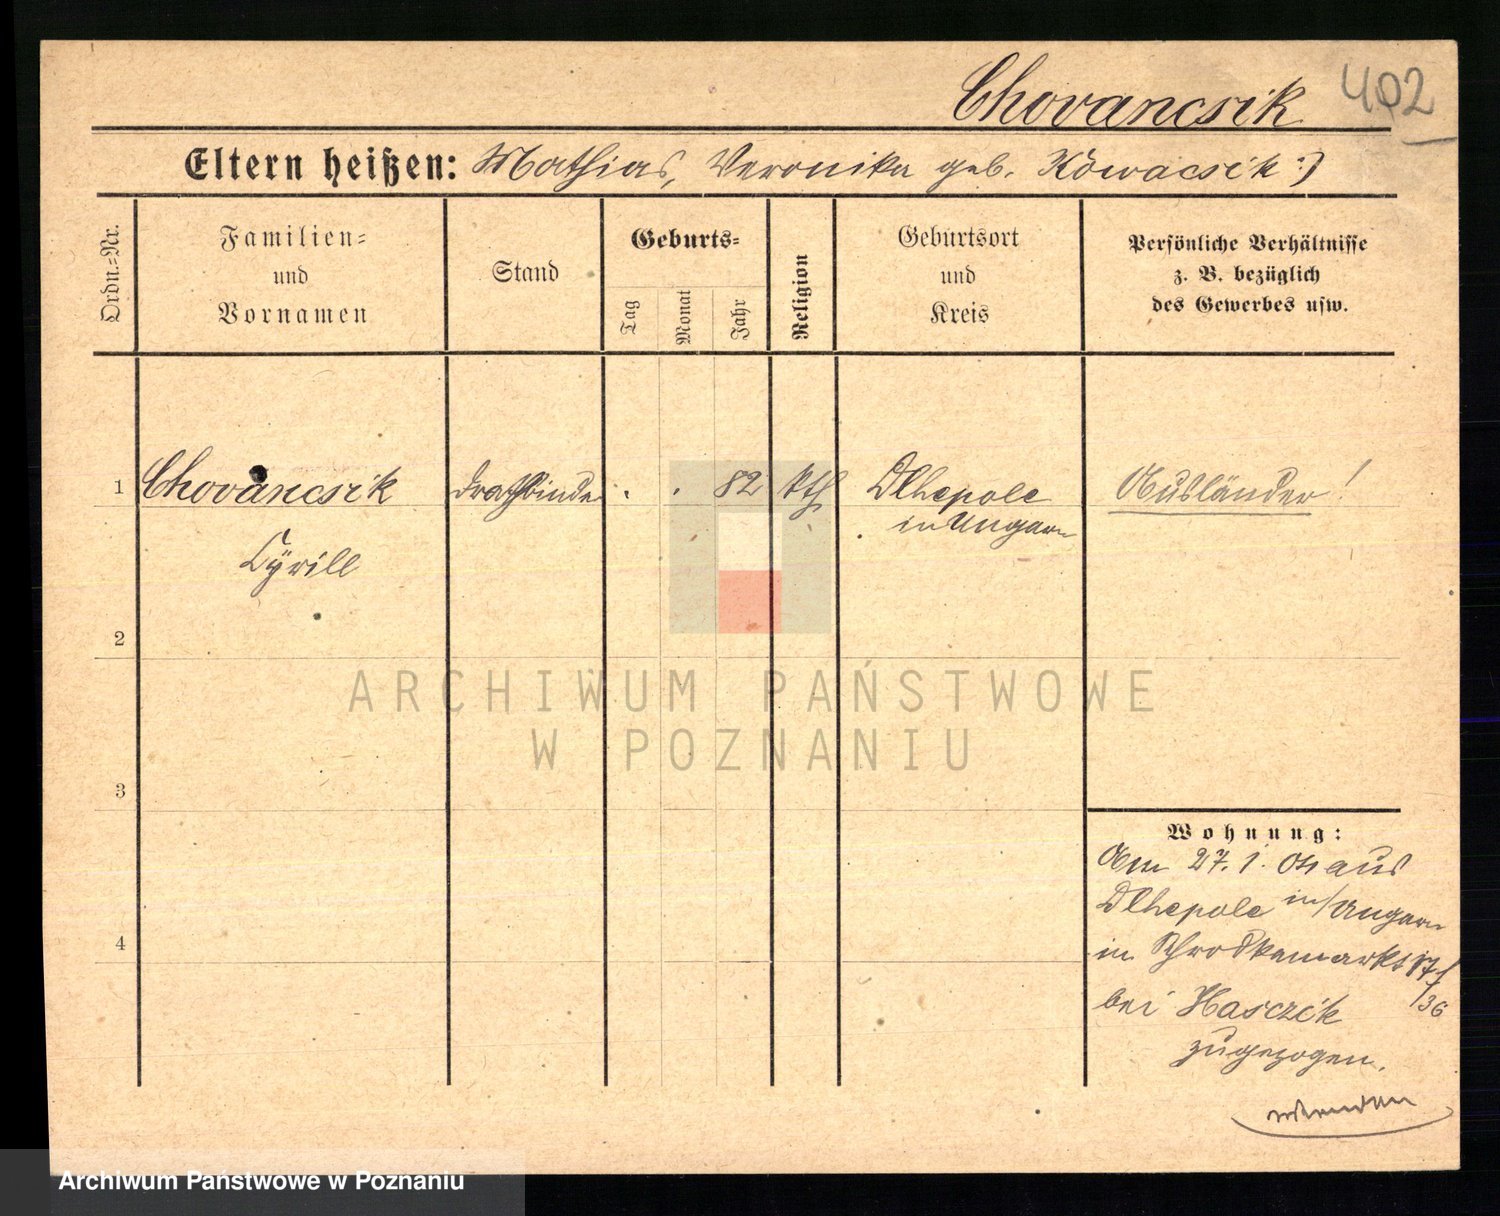 Chovancsik 402
Eltern heißen: Mathias, Veronika geb. Kowacsik :)
Ordn.-Nr.
Familien-
und
Vornamen
Stand
Geburts-
Tag
Monat
Jahr
Religion
Geburtsort
und
Kreis
Persönliche Verhältnisse
z. B. bezüglich
des Gewerbes usw.
1 Chovancsik Drathbinder . . 82 kth Dlhepole Ausländer!
in Ungarn
Cyrill
2
3
4
Wohnung:
Am 27. 1. 04 aus
Dlhepole in/Ungarn
in Schrodkamarkt 17/
/36
bei Hasczik
zugezogen.
wenden
ARCHIWUM PAŃSTWOWE
W POZNANIU
Archiwum Państwowe w Poznaniu